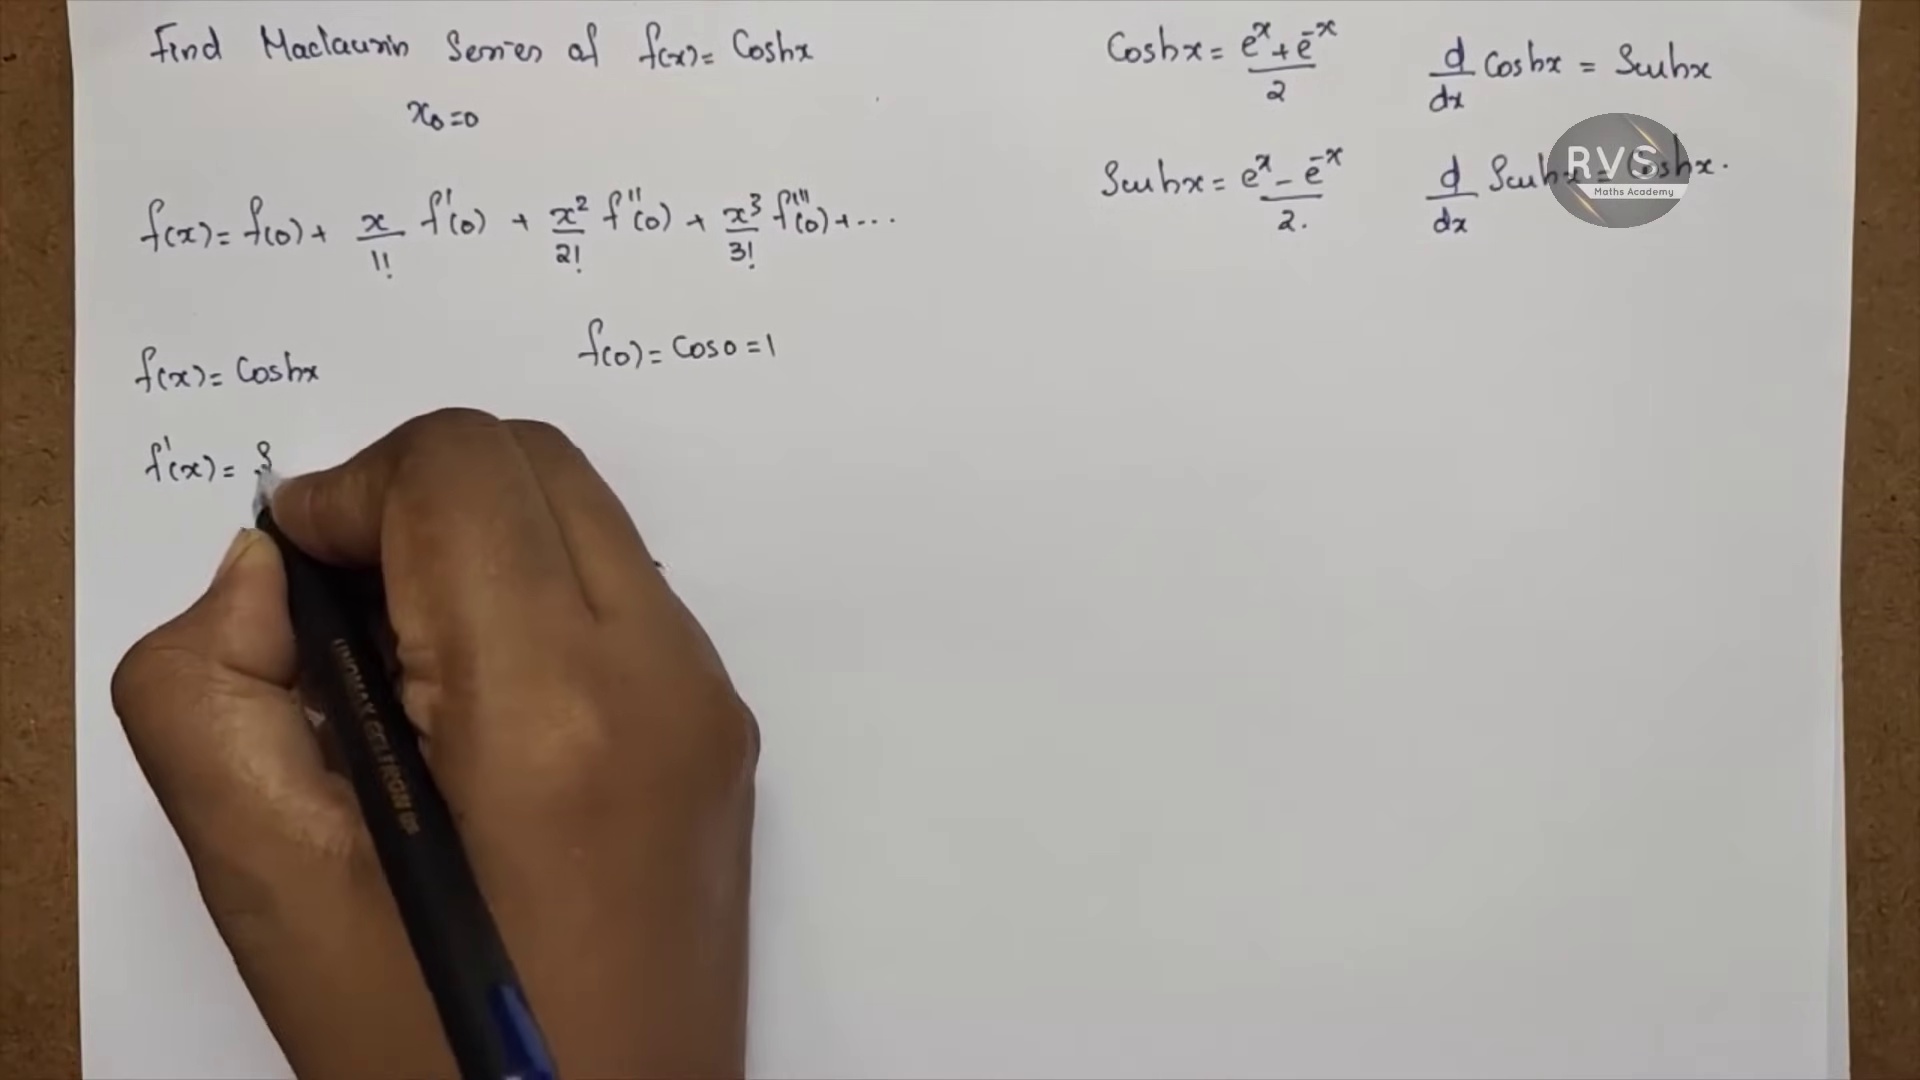 Find Maclaurin Series of f(x) = Coshx
x₀=0
f(x) = f(0) + x/1! f'(0) + x²/2! f''(0) + x³/3! f'''(0) + ...
f(x) = Coshx
f(0) = Cos0 = 1
f'(x) = S
Coshx = (eˣ + e⁻ˣ)/2
d/dx Coshx = Sinhx
Sinhx = (eˣ - e⁻ˣ)/2.
d/dx Sinhx = Coshx.
RVS
Maths Academy
UNOMAX GELTRON